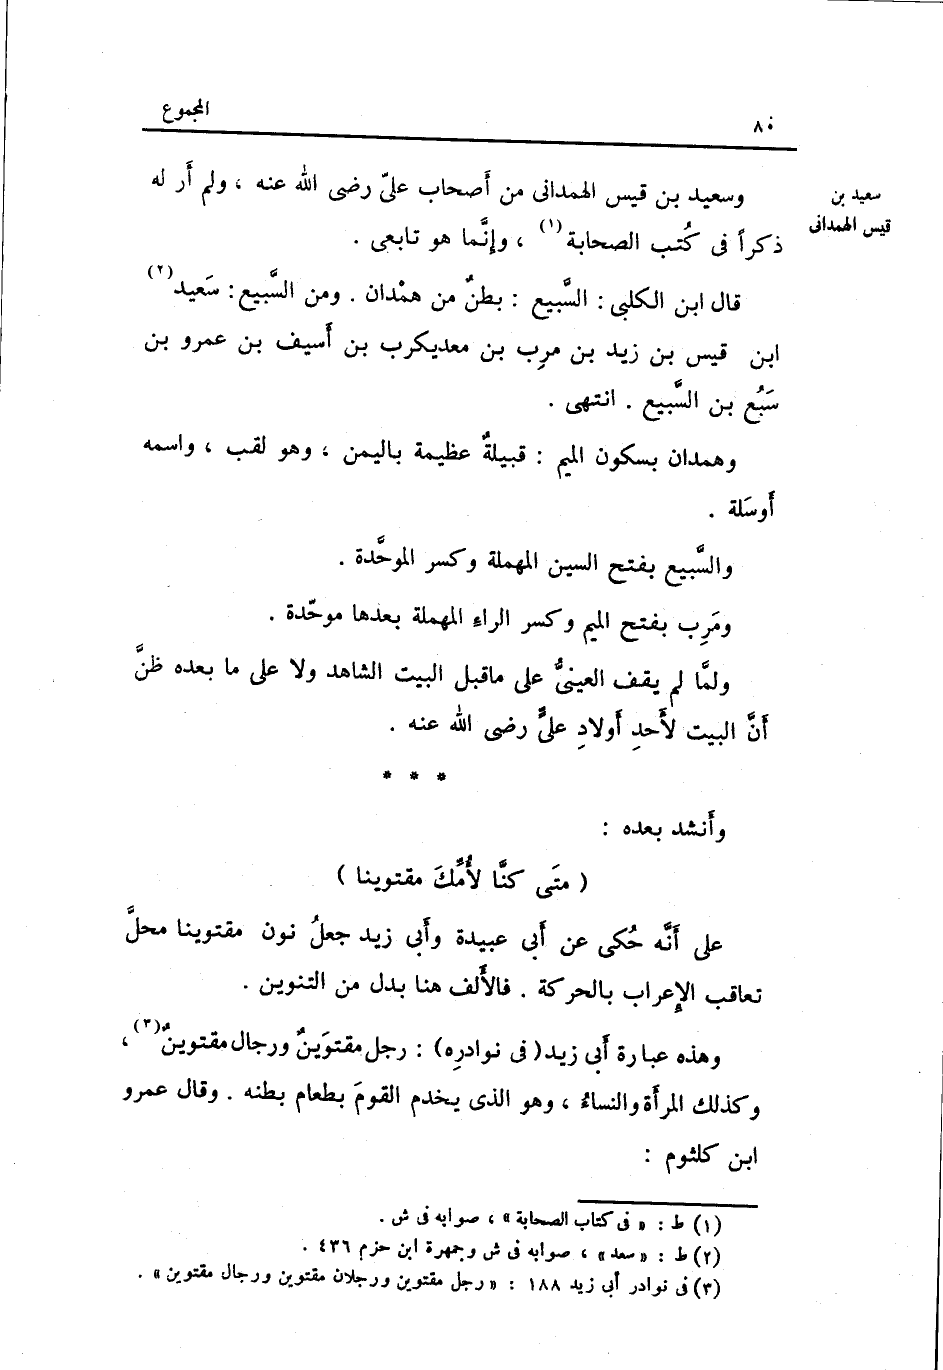 ٨٠
المجموع
سعيد بن
قيس الهمدانى
وسعيد بن قيس الهمدانى من أصحاب علىّ رضى الله عنه ، ولم أر له
ذكراً فى كُتب الصحابة (١) ، وإنَّما هو تابعى .
قال ابن الكلبى : السَّبيع : بطنٌ من همْدان . ومن السَّبيع : سَعيد (٢)
ابن قيس بن زيد بن مرِب بن معديكرب بن أسيف بن عمرو بن
سَبُع بن السَّبيع . انتهى .
وهمدان بسكون الميم : قبيلةٌ عظيمة باليمن ، وهو لقب ، واسمه
أوسَلة .
والسَّبيع بفتح السين المهملة وكسر الموحَّدة .
ومَرِب بفتح الميم وكسر الراء المهملة بعدها موحّدة .
ولمَّا لم يقف العينىُّ على ماقبل البيت الشاهد ولا على ما بعده ظنَّ
أنَّ البيت لأحدِ أولادِ علىٍّ رضى الله عنه .
* * *
وأنشد بعده :
( متَى كنَّا لأُمِّكَ مقتوينا )
على أنَّه حُكى عن أبى عبيدة وأبى زيد جعلُ نون مقتوينا محلَّ
تعاقب الإعراب بالحركة . فالألف هنا بدل من التنوين .
وهذه عبارة أبى زيد ( فى نوادرِه ) : رجل مقتوَينٌ ورجال مقتوينٌ (٣) ،
وكذلك المرأة والنساءُ ، وهو الذى يخدم القومَ بطعام بطنه . وقال عمرو
ابن كلثوم :
(١) ط : « فى كتاب الصحابة » ، صوابه فى ش .
(٢) ط : « سعد » ، صوابه فى ش وجمهرة ابن حزم ٤٣٦ .
(٣) فى نوادر أبى زيد ١٨٨ : « رجل مقتوين ورجلان مقتوين ورجال مقتوين » .